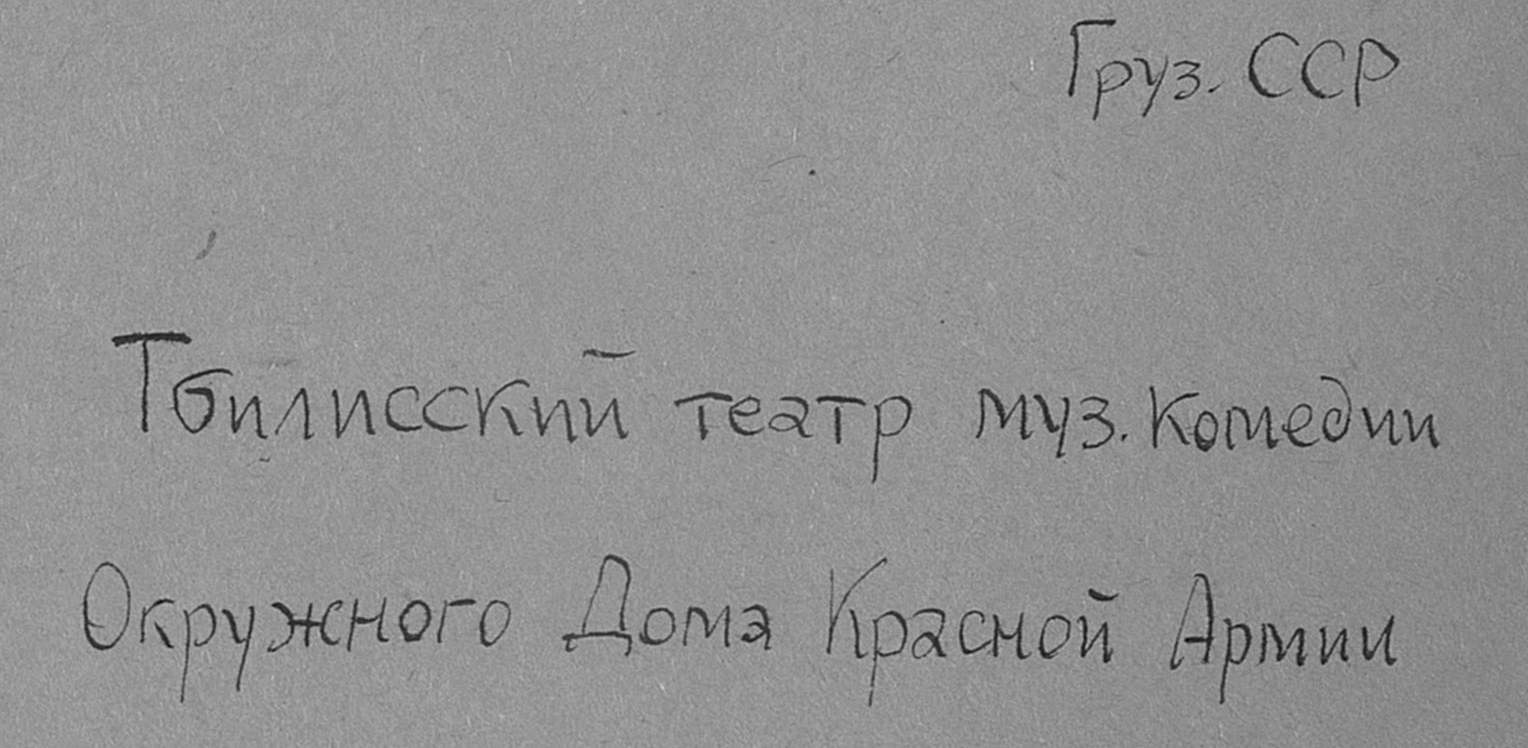 Груз. ССР
Тбилисский театр муз. комедии
Окружного Дома Красной Армии